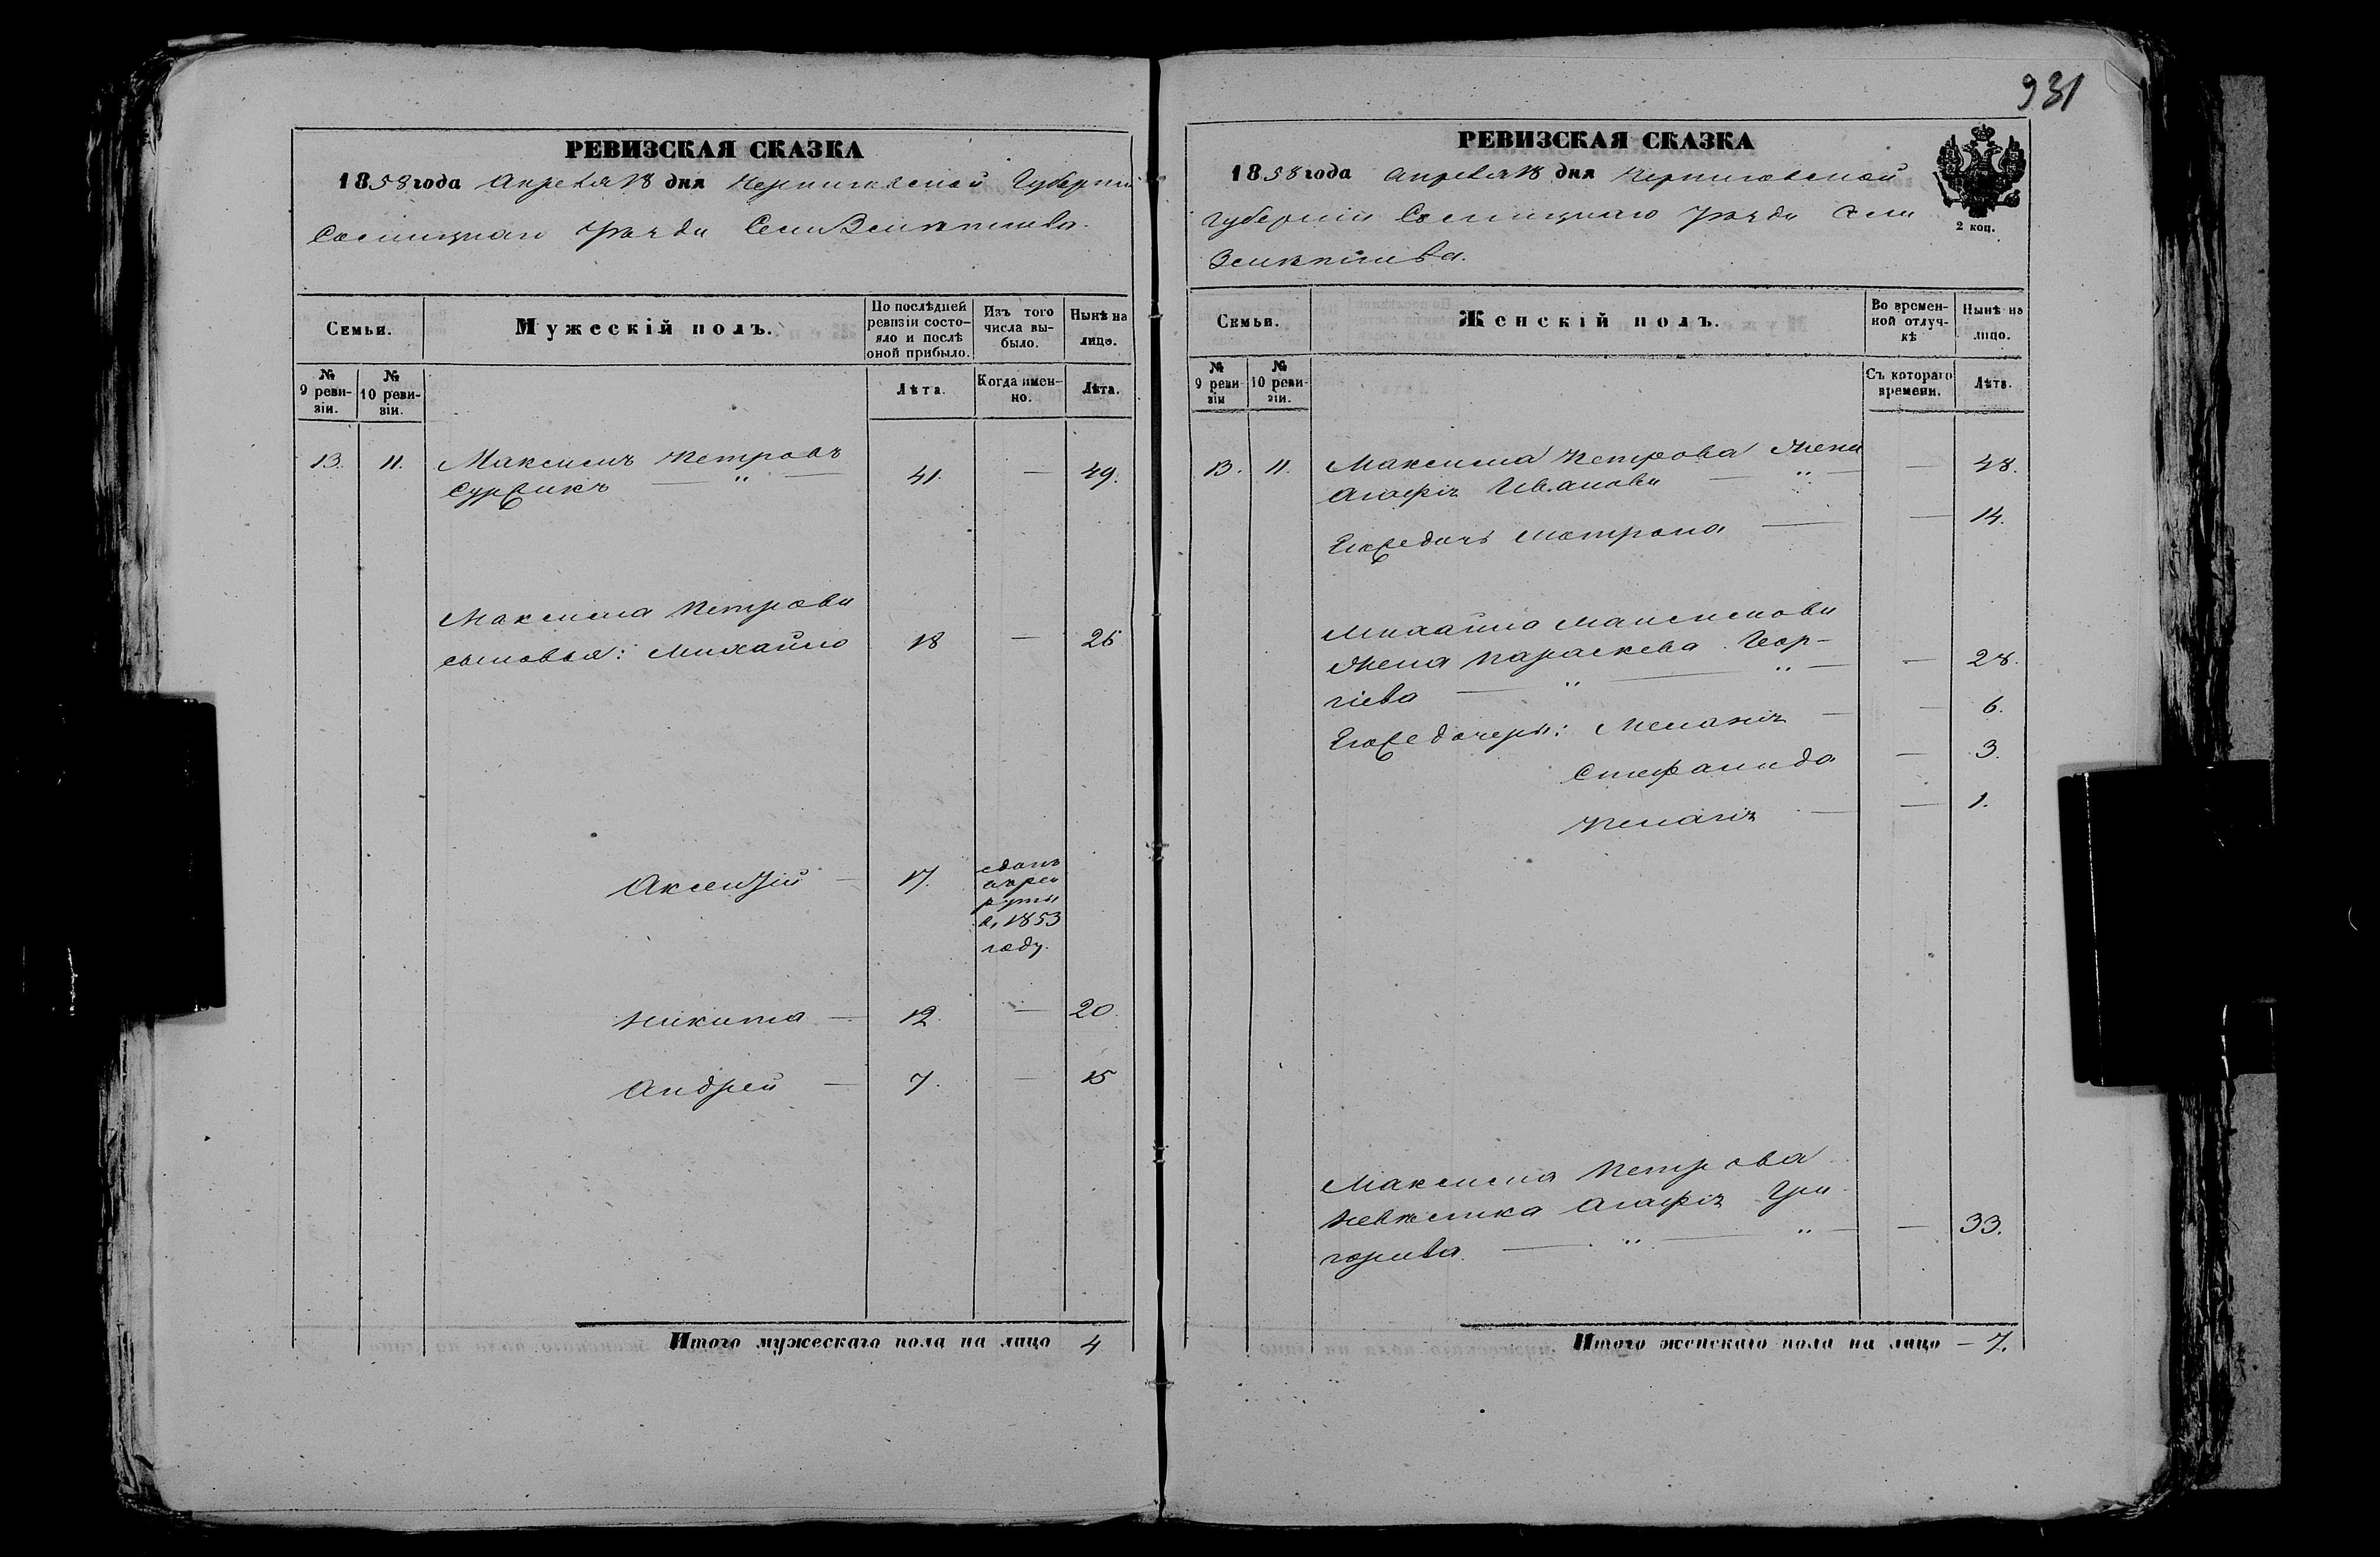 931
РЕВИЗСКАЯ СКАЗКА
1858 года Апреля 18 дня Черниговской Губерніи
Сосницкаго уезда Села
Семьи.
Мужескій полъ.
По послѣдней ревизіи состояло и послѣ оной прибыло.
Изъ того числа выбыло.
Нынѣ на лицо.
№ 9 ревизіи.
№ 10 ревизіи.
Лѣта.
Когда именно.
Лѣта.
13. 11. Максимъ Петровъ
— " — 41. — 49.
Максима Петрова
сыновья: Михайло 18 — 26
Аксентій — 17. сданъ
в рек
руты
в 1853
году.
Никита — 12 — 20.
Андрей — 7. — 15
Итого мужескаго пола на лицо 4
РЕВИЗСКАЯ СКАЗКА
1858 года Апреля 18 дня Черниговской
Губерніи Сосницкаго уезда Села
2 коп.
Семьи.
Женскій полъ.
Во временной отлучкѣ
Нынѣ на лицо.
№ 9 ревизіи
№ 10 ревизіи.
Съ котораго времени.
Лѣта.
13. 11. Максима Петрова жена
Агафія Иванова — " — — 48.
Его же дочь Матрона — — 14.
Михайла Максимова
жена Параскева Геор-
гіева — " — " — — 28.
Его же дочери: Меланія — — 6.
Стефанида — 3.
Пелагія — — 1.
Максима Петрова
невѣстка Агафія Гри
горьева — " — " — — 33.
Итого женскаго пола на лицо — 7.